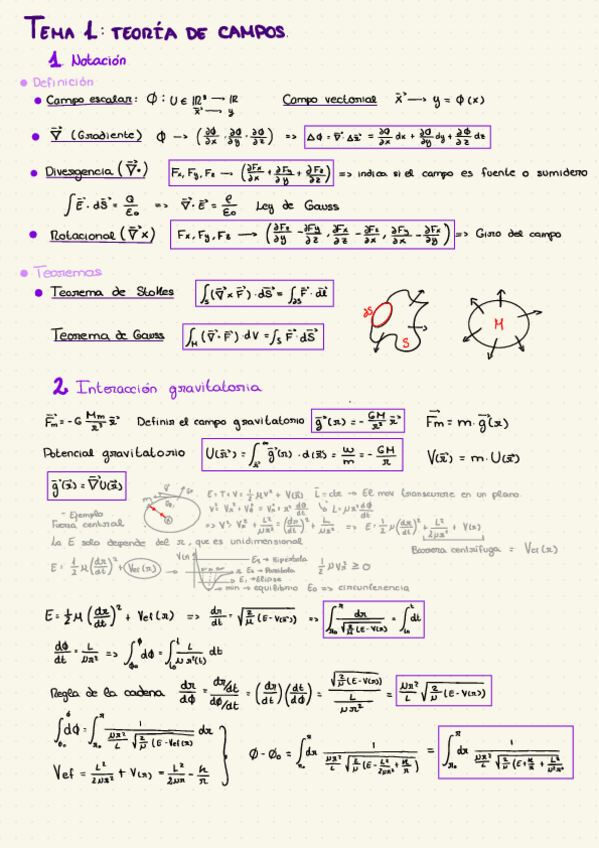 TEMA 1: TEORÍA DE CAMPOS.
1. Notación
• Definición
• Campo escalar: ϕ: U ∈ ℝ³ → ℝ Campo vectorial x⃗ → y = ϕ(x)
x⃗ → y
• ∇⃗ (Gradiente) ϕ → (∂ϕ/∂x, ∂ϕ/∂y, ∂ϕ/∂z) => Δϕ = ∇⃗·Δx⃗ = ∂ϕ/∂x dx + ∂ϕ/∂y dy + ∂ϕ/∂z dz
• Divergencia (∇⃗·) Fx, Fy, Fz → (∂Fx/∂x + ∂Fy/∂y + ∂Fz/∂z) => indica si el campo es fuente o sumidero
∫E⃗·dS⃗ = Q/ε₀ => ∇⃗·E⃗ = ρ/ε₀ Ley de Gauss
• Rotacional (∇⃗x) Fx, Fy, Fz → (∂Fz/∂y - ∂Fy/∂z, ∂Fx/∂z - ∂Fz/∂x, ∂Fy/∂x - ∂Fx/∂y) => Giro del campo
• Teoremas
• Teorema de Stokes ∫S (∇⃗ x F⃗)·dS⃗ = ∫∂S F⃗·dl⃗
∂S S M
Teorema de Gauss ∫M (∇⃗·F⃗)·dV = ∫S F⃗·dS⃗
2. Interacción gravitatoria
F⃗m = -G Mm/r³ r⃗ Definir el campo gravitatorio g⃗(r) = - GM/r³ r⃗ F⃗m = m·g⃗(r)
Potencial gravitatorio U(r⃗) = ∫ g⃗(r)·d(r⃗) = W/m = - GM/r V(r⃗) = m·U(r⃗)
g⃗(r⃗) = ∇⃗U(r⃗)
- Ejemplo
Fuerza central
E = T + V = 1/2 μV² + V(r) L = cte → El mov transcurre en un plano.
=> V² = (dr/dt)² + L²/μr² => E = 1/2 μ(dr/dt)² + L²/2μr² + V(r)
La E solo depende del r, que es unidimensional
Barrera centrífuga = Vef(r)
E = 1/2 μ(dr/dt)² + Vef(r) → 1/2 μVr² ≥ 0
E₃ → Hipérbola
E₂ → Parábola
E₁ → Elipse
min → equilibrio E₀ => circunferencia
E = 1/2 μ(dr/dt)² + Vef(r) => dr/dt = √(2/μ (E - V(r))) => ∫r₀^r dr/√(2/μ (E - V(r))) = ∫t₀^t dt
dϕ/dt = L/μr² => ∫ϕ₀^ϕ dϕ = ∫t₀^t L/μr²(t) dt
Regla de la cadena dr/dϕ = dr/dt / dϕ/dt = (dr/dt)(dt/dϕ) = √(2/μ (E - V(r))) / (L/μr²) = μr²/L √(2/μ (E - V(r)))
∫ϕ₀^ϕ dϕ = ∫r₀^r 1/(μr²/L √(2/μ (E - Vef(r)))) dr
ϕ - ϕ₀ = ∫r₀^r dr 1/(μr²/L √(2/μ (E - L²/2μr² + K/r))) = ∫r₀^r dr 1/(μr²/L √(2/μ (E + K/r + L²/μ²r²)))
Vef = L²/2μr² + V(r) = L²/2μr² - K/r